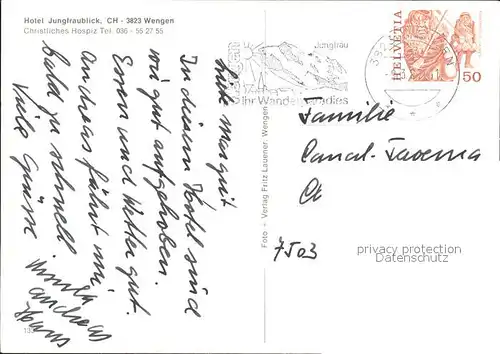 Hotel Jungfraublick, CH - 3823 Wengen
Christliches Hospiz Tel. 036 - 55 27 55
Liebe Margrit
In diesem Hotel sind
wir gut aufgehoben.
Essen und Wetter gut.
Andreas fährt mir
bald zu schnell
Viele Grüsse
Ursula
Andreas
Hans
Foto + Verlag Fritz Lauener, Wengen
Jungfrau
Ihr Wanderparadies
HELVETIA
50
Familie
Canal-Taverna
7503
privacy protection
Datenschutz